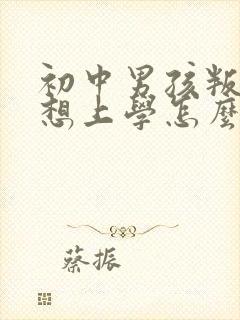 初中男孩叛
想上學怎麼
蔡振